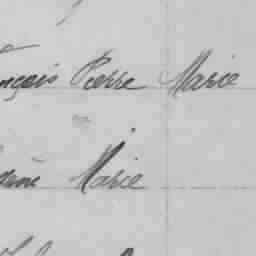 nçois Pierre Marie
Marie